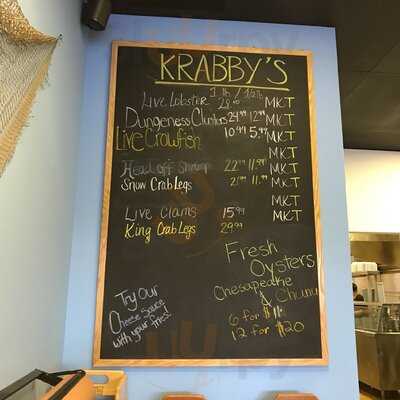 KRABBY'S
1 lb / 1/2 lb
Live Lobster 28.00 MKT
Dungeness Clusters 24.99 12.99 MKT
Live Crawfish 10.99 5.99 MKT
MKT
Head off Shrimp 22.99 11.99 MKT
Snow Crab Legs 11.99 MKT
MKT
Live Clams 15.99 MKT
King Crab Legs 29.99
Fresh
Oysters
Chesapeake
&
6 for $11
12 for $20
Try Our
Cheese sauce
with your fries!